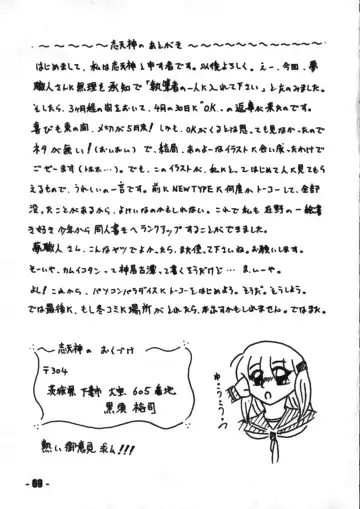 ～志天神のあとがき～
はじめまして、私は志天神と申す者です。以後よろしく。えー、今回、夢
職人さんに無理を承知で「執筆者の一人に入れて下さい」とたのみました。
そしたら、3ヶ月程の間をおいて、4月の30日に"OK"の返事が来たのです。
喜びも束の間、〆切が5月末！しかも、OKがくるとは思っても見なかったので
ネタが無い！(おいおい)で、結局、あのよーなイラストに合い成ったわけで
ございます(とほほ…)。でも、このイラストが、私にとってはじめて人に見てもら
えるもので、うれしいの一言です。前にNEWTYPEに何度かトーコーして、全部
没。たことがあるから、よけいなのかもしれない。これで私も在野の一絵書
き好き少年から同人書生へランクアップすることができました。
夢職人さん、こんなヤツでよかったら、また使って下さいね。お願いします。
そーいや、カムイコタンって神居古潭って書くそうだけど…ま、いーや。
よし！これから、パソコンパラダイスにトーコーをはじめよう。そうだ、そうしよう。
では最後に、もし冬コミに場所がとれたら、本出すかもしれません。ではまた。
～志天神のおくづけ
〒304
茨城県下妻市大宝605番地
黒須裕司
熱い御意見求ム!!!
ゆうううっ
- 69 -